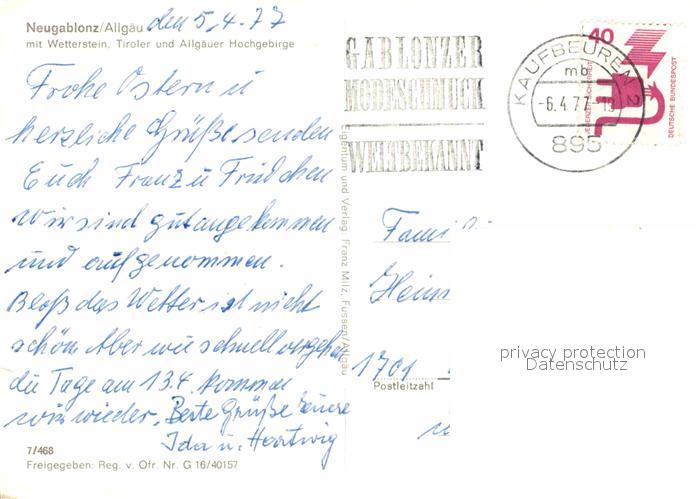 Neugablonz/Allgäu den 5.4.77
mit Wetterstein, Tiroler und Allgäuer Hochgebirge
Frohe Ostern u
herzliche Grüße senden
Euch Franz u Friedchen
wir sind gut angekommen
und aufgenommen.
Bloß das Wetter ist nicht
schön. Aber wie schnell vergehen
die Tage am 13.4. kommen
wir wieder. Beste Grüße Eure
Ida u. Hartwig
7/468
Freigegeben: Reg. v. Ofr. Nr. G 16/40157
Eigentum und Verlag Franz Milz, Füssen/Allgäu
GABLONZER
MODESCHMUCK
WELTBEKANNT
KAUFBEUREN 2
mb
-6.4.77-18
895
40
JEDERZEIT SICHERHEIT
DEUTSCHE BUNDESPOST
Fami
Hein
1701
Postleitzahl
privacy protection
Datenschutz